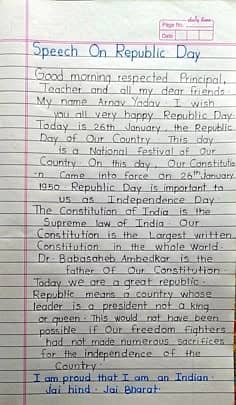 Page No.
Date
Speech On Republic Day
Good morning respected Principal,
Teacher and all my dear friends.
My name Arnav Yadav. I wish
you all very happy Republic Day.
Today is 26th January, the Republic
Day of Our Country. This day
is a National festival of Our
Country. On this day, Our Constitutio
n. Came into force on 26th January,
1950. Republic Day is important to
us as Independence Day.
The Constitution of India is the
Supreme law of India. Our
Constitution is the Largest written
Constitution in the whole World.
Dr. Babasaheb Ambedkar is the
father Of Our Constitution.
Today we are a great republic.
Republic means a country whose
leader is a president not a king
or queen. This would not have been
possible if Our freedom fighters
had not made numerous sacrifices
for the independence of the
Country.
I am proud that I am an Indian.
Jai hind. Jai Bharat.